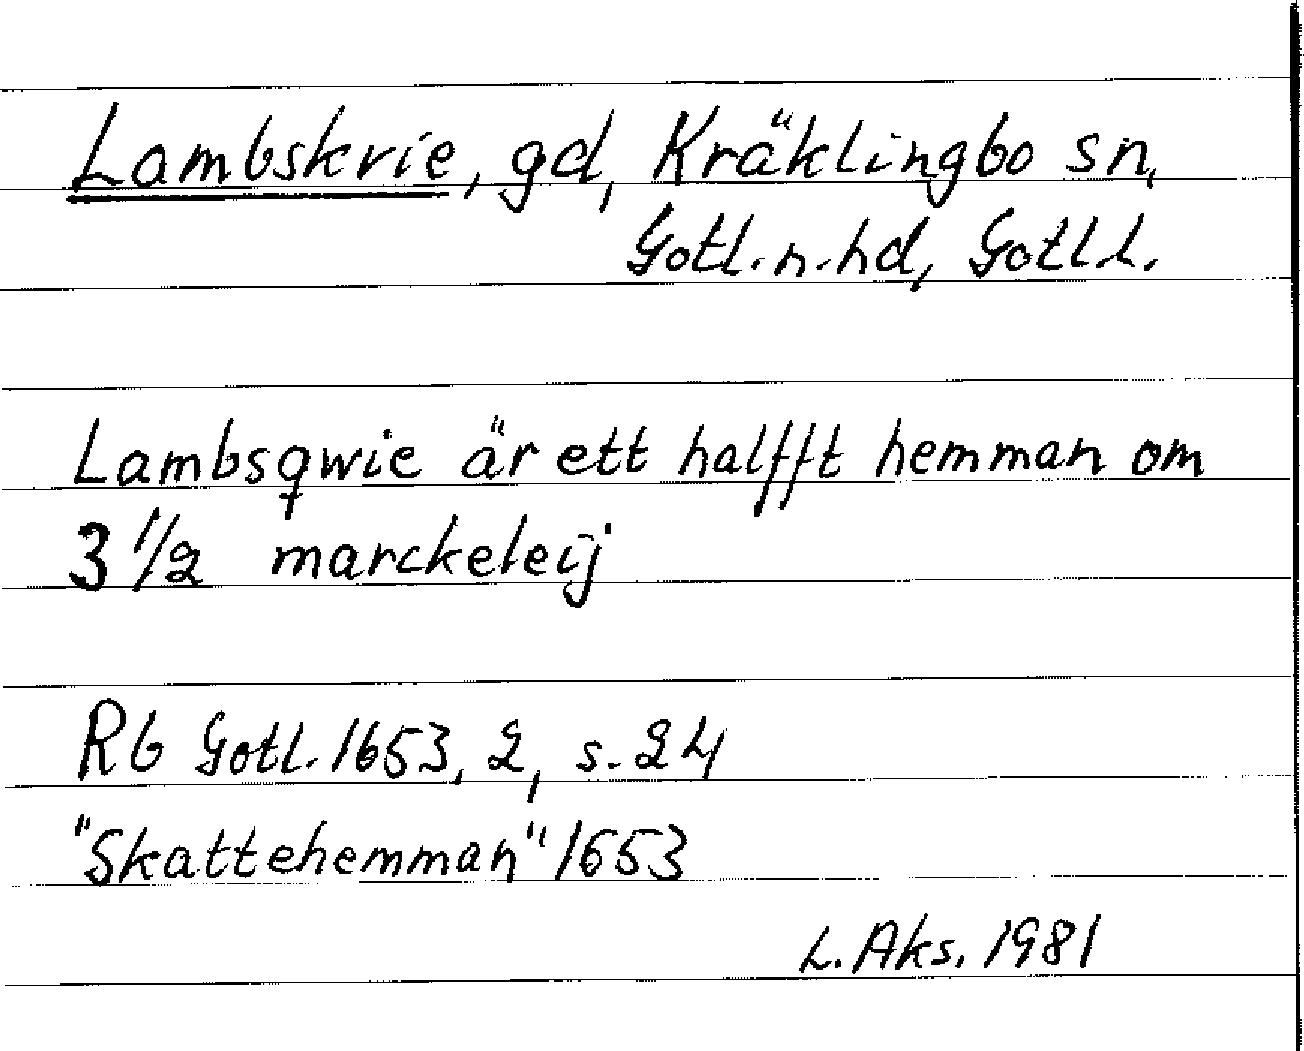 Lambskvie, gd, Kräklingbo sn,
Gotl. n. hd, Gotl.l.
Lambsqwie är ett halfft hemman om
3 1/2 marckeleij
Rb Gotl. 1653, 2, s. 24
"Skattehemman" 1653
L. Aks. 1981